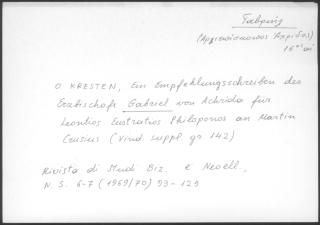 Γαβριήλ
(Ἀρχιεπίσκοπος Ἀχρίδος)
16ος αἰ
O KRESTEN, Ein Empfehlungsschreiben des
Erzbischofs Gabriel von Achrida für
Leontios Eustratios Philoponos an Martin
Crusius (Vind. suppl. gr. 142)
Rivista di Studi Biz. e Neoell.,
N. S. 6-7 (1969/70) 93-125